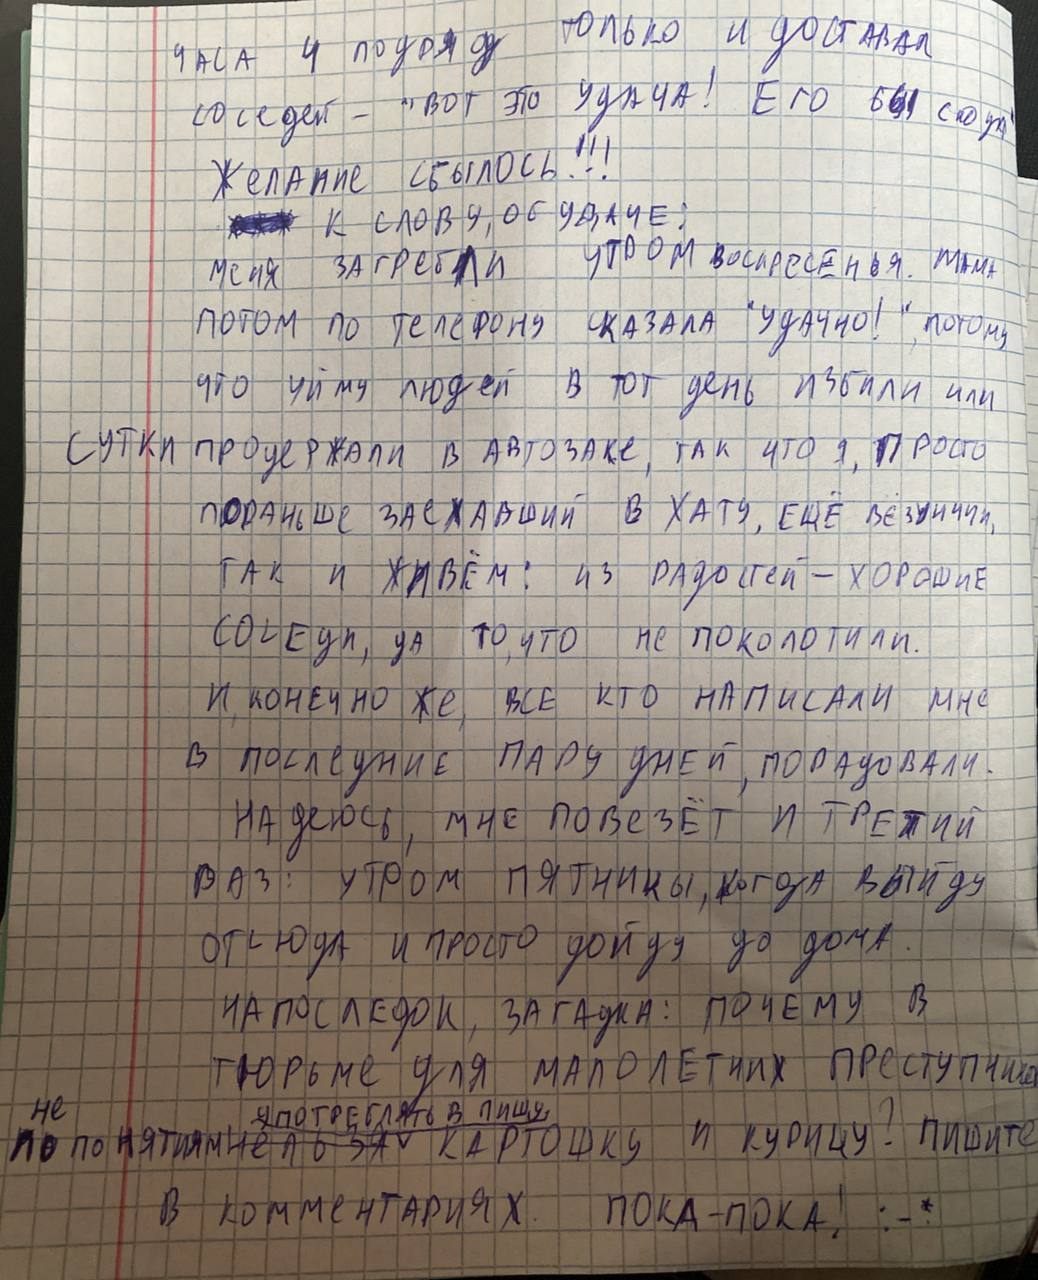 ЧАСА 4 ПОДРЯД ТОЛЬКО И ДОСТАВАЛ
СОСЕДЕЙ – "ВОТ ЭТО УДАЧА! ЕГО БЫ
ЖЕЛАНИЕ СБЫЛОСЬ!!!
К СЛОВУ, ОБ УДАЧЕ:
МЕНЯ ЗАГРЕБЛИ УТРОМ ВОСКРЕСЕНЬЯ. МАМА
ПОТОМ ПО ТЕЛЕФОНУ СКАЗАЛА "УДАЧНО!", ПОТОМУ
ЧТО УЙМУ ЛЮДЕЙ В ТОТ ДЕНЬ ИЗБИЛИ ИЛИ
СУТКИ ПРОДЕРЖАЛИ В АВТОЗАКЕ, ТАК ЧТО Я, ПРОСТО
ПОРАНЬШЕ ЗАЕХАВШИЙ В ХАТУ, ЕЩЁ ВЕЗУНЧИК,
ТАК И ЖИВЁМ: ИЗ РАДОСТЕЙ – ХОРОШИЕ
СОСЕДИ, ДА ТО, ЧТО НЕ ПОКОЛОТИЛИ.
И, КОНЕЧНО ЖЕ, ВСЕ КТО НАПИСАЛИ МНЕ
В ПОСЛЕДНИЕ ПАРУ ДНЕЙ, ПОРАДОВАЛИ.
НАДЕЮСЬ, МНЕ ПОВЕЗЁТ И ТРЕТИЙ
РАЗ: УТРОМ ПЯТНИЦЫ, КОГДА ВЫЙДУ
ОТСЮДА И ПРОСТО ДОЙДУ ДО ДОМА.
НАПОСЛЕДОК, ЗАГАДКА: ПОЧЕМУ В
ТЮРЬМЕ ДЛЯ МАЛОЛЕТНИХ ПРЕСТУПНИКОВ
НЕ УПОТРЕБЛЯТЬ В ПИЩУ
ПО ПОНЯТИЯМ НЕЛЬЗЯ КАРТОШКУ И КУРИЦУ? ПИШИТЕ
В КОММЕНТАРИЯХ. ПОКА-ПОКА! :-*